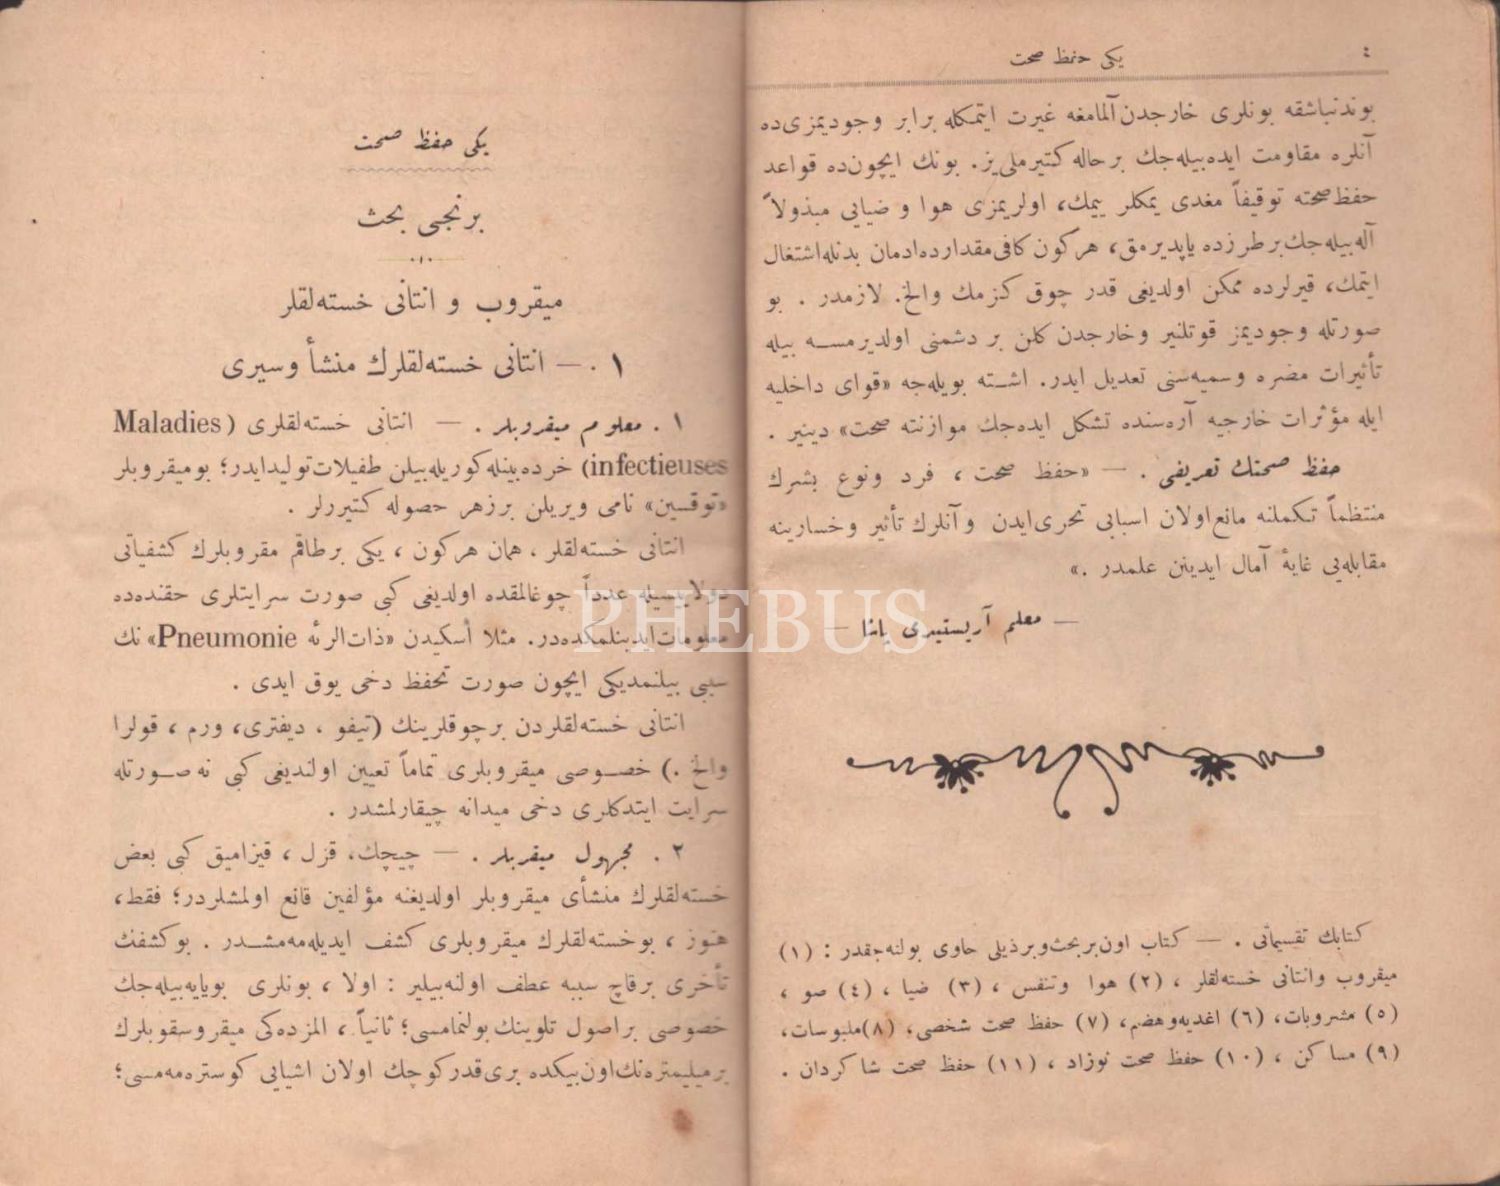 ٤
یكی حفظ صحت
بوندنباشقه بونلری خارجدن آلمامغه غیرت ایتمكله برابر وجودیمزی‌ده
آنلره مقاومت ایده‌بیله‌جك بر حاله كتیرملی‌یز. بونك ایچون‌ده قواعد
حفظ‌صحته توقیفاً مغدی یمكلر ییمك، اولریمزی هوا و ضیایی مبذولاً
آله‌بیله‌جك بر طرزده یاپدیرمق، هر كون كافی مقدارده ادمان بدنله اشتغال
ایتمك، قیرلرده ممكن اولدیغی قدر چوق كزمك والخ. لازمدر . بو
صورتله وجودیمز قوتلنیر و خارجدن كلن بر دشمنی اولدیرمسه بیله
تأثیرات مضره و سمیه‌سنی تعدیل ایدر. اشته بویله‌جه «قوای داخلیه
ایله مؤثرات خارجیه آره‌سنده تشكل ایده‌جك موازنته صحت» دینیر .
حفظ صحتك تعریفی . — «حفظ صحت ، فرد ونوع بشرك
منتظماً تكملنه مانع اولان اسبابی تحری‌ایدن و آنلرك تأثیر و خسارینه
مقابله‌یی غایهٔ آمال ایدینن علمدر .»
— معلم آریستیدی پاشا —
كتابك تقسیماتی . — كتاب اون‌بر بحث و برذیلی حاوی بولنه‌جقدر : (۱)
میقروب وانتانی خسته‌لقلر ، (۲) هوا وتنفس ، (۳) ضیا ، (٤) صو ،
(٥) مشروبات، (٦) اغدیه‌وهضم، (۷) حفظ صحت شخصی، (۸) ملبوسات،
(۹) مساكن ، (۱۰) حفظ صحت نوزاد ، (۱۱) حفظ صحت شاكردان .
یكی حفظ صحت
برنجی بحث
میقروب و انتانی خسته‌لقلر
۱ . — انتانی خسته‌لقلرك منشأ وسیری
۱ . معلوم میقروبلر . — انتانی خسته‌لقلری (Maladies
infectieuses) خرده‌بینله كوریله‌بیلن طفیلات تولیدایدر؛ بومیقروبلر
«توقسین» نامی ویریلن برزهر حصوله كتیررلر .
انتانی خسته‌لقلر ، همان هركون ، یكی برطاقم مقروبلرك كشفیاتی
طولاییسیله عدداً چوغالمقده اولدیغی كبی صورت سرایتلری حقنده‌ده
معلومات‌ایدینلمكده‌در. مثلا اسكیدن «ذات‌الرئه Pneumonie» نك
سببی بیلنمدیكی ایچون صورت تحفظ دخی یوق ایدی .
انتانی خسته‌لقلردن برچوقلرینك (تیفو ، دیفتری، ورم ، قولرا
والخ .) خصوصی میقروبلری تماماً تعیین اولندیغی كبی نه صورتله
سرایت ایتدكلری دخی میدانه چیقارلمشدر .
۲ . مجهول میقربلر . — چیچك، قزل ، قیزامیق كبی بعض
خسته‌لقلرك منشأی میقروبلر اولدیغنه مؤلفین قانع اولمشلردر؛ فقط،
هنوز ، بوخسته‌لقلرك میقروبلری كشف ایدیله‌مه‌مشدر . بوكشفك
تأخری برقاچ سببه عطف اولنه‌بیلیر : اولا ، بونلری بویایه‌بیله‌جك
خصوصی براصول تلوینك بولنمامسی؛ ثانیاً ، المزده‌كی میقروسقوبلرك
برمیلیمتره‌نك‌اون‌بیكده بری‌قدركوچك اولان اشیایی كوستره‌مه‌مسی؛
PHEBUS